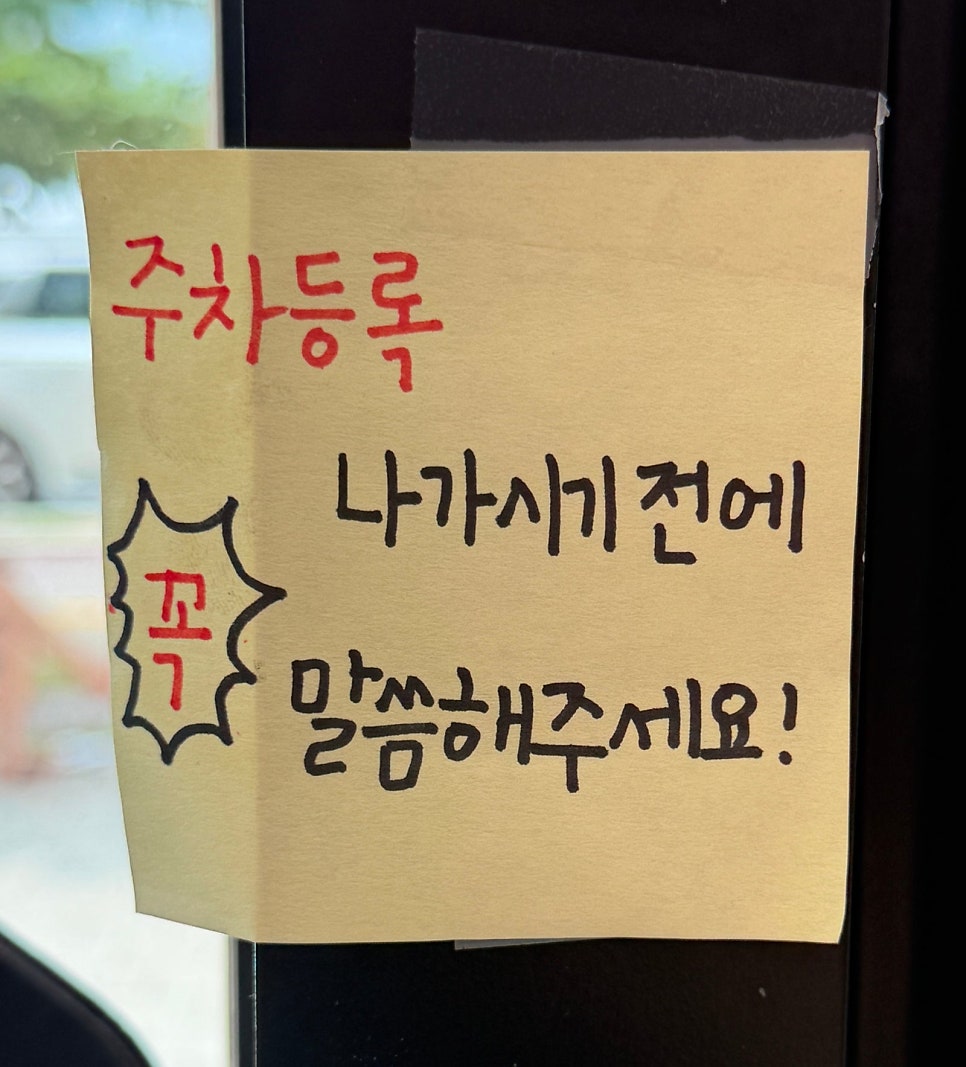 주차등록
나가시기 전에
꼭
말씀해주세요!